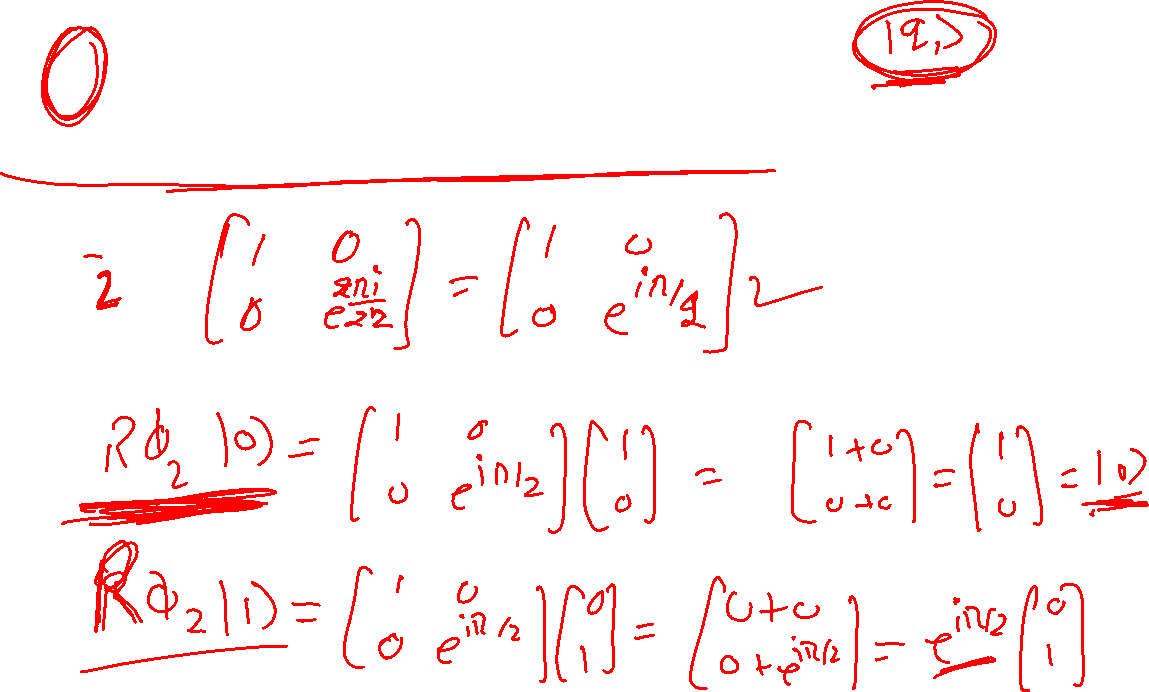 0 |q₁⟩
2 [1 0; 0 e^(2πi/2²)] = [1 0; 0 e^(iπ/2)]
Rϕ₂ |0⟩ = [1 0; 0 e^(iπ/2)] [1; 0] = [1+0; 0+0] = [1; 0] = |0⟩
Rϕ₂ |1⟩ = [1 0; 0 e^(iπ/2)] [0; 1] = [0+0; 0+e^(iπ/2)] = e^(iπ/2) [0; 1]